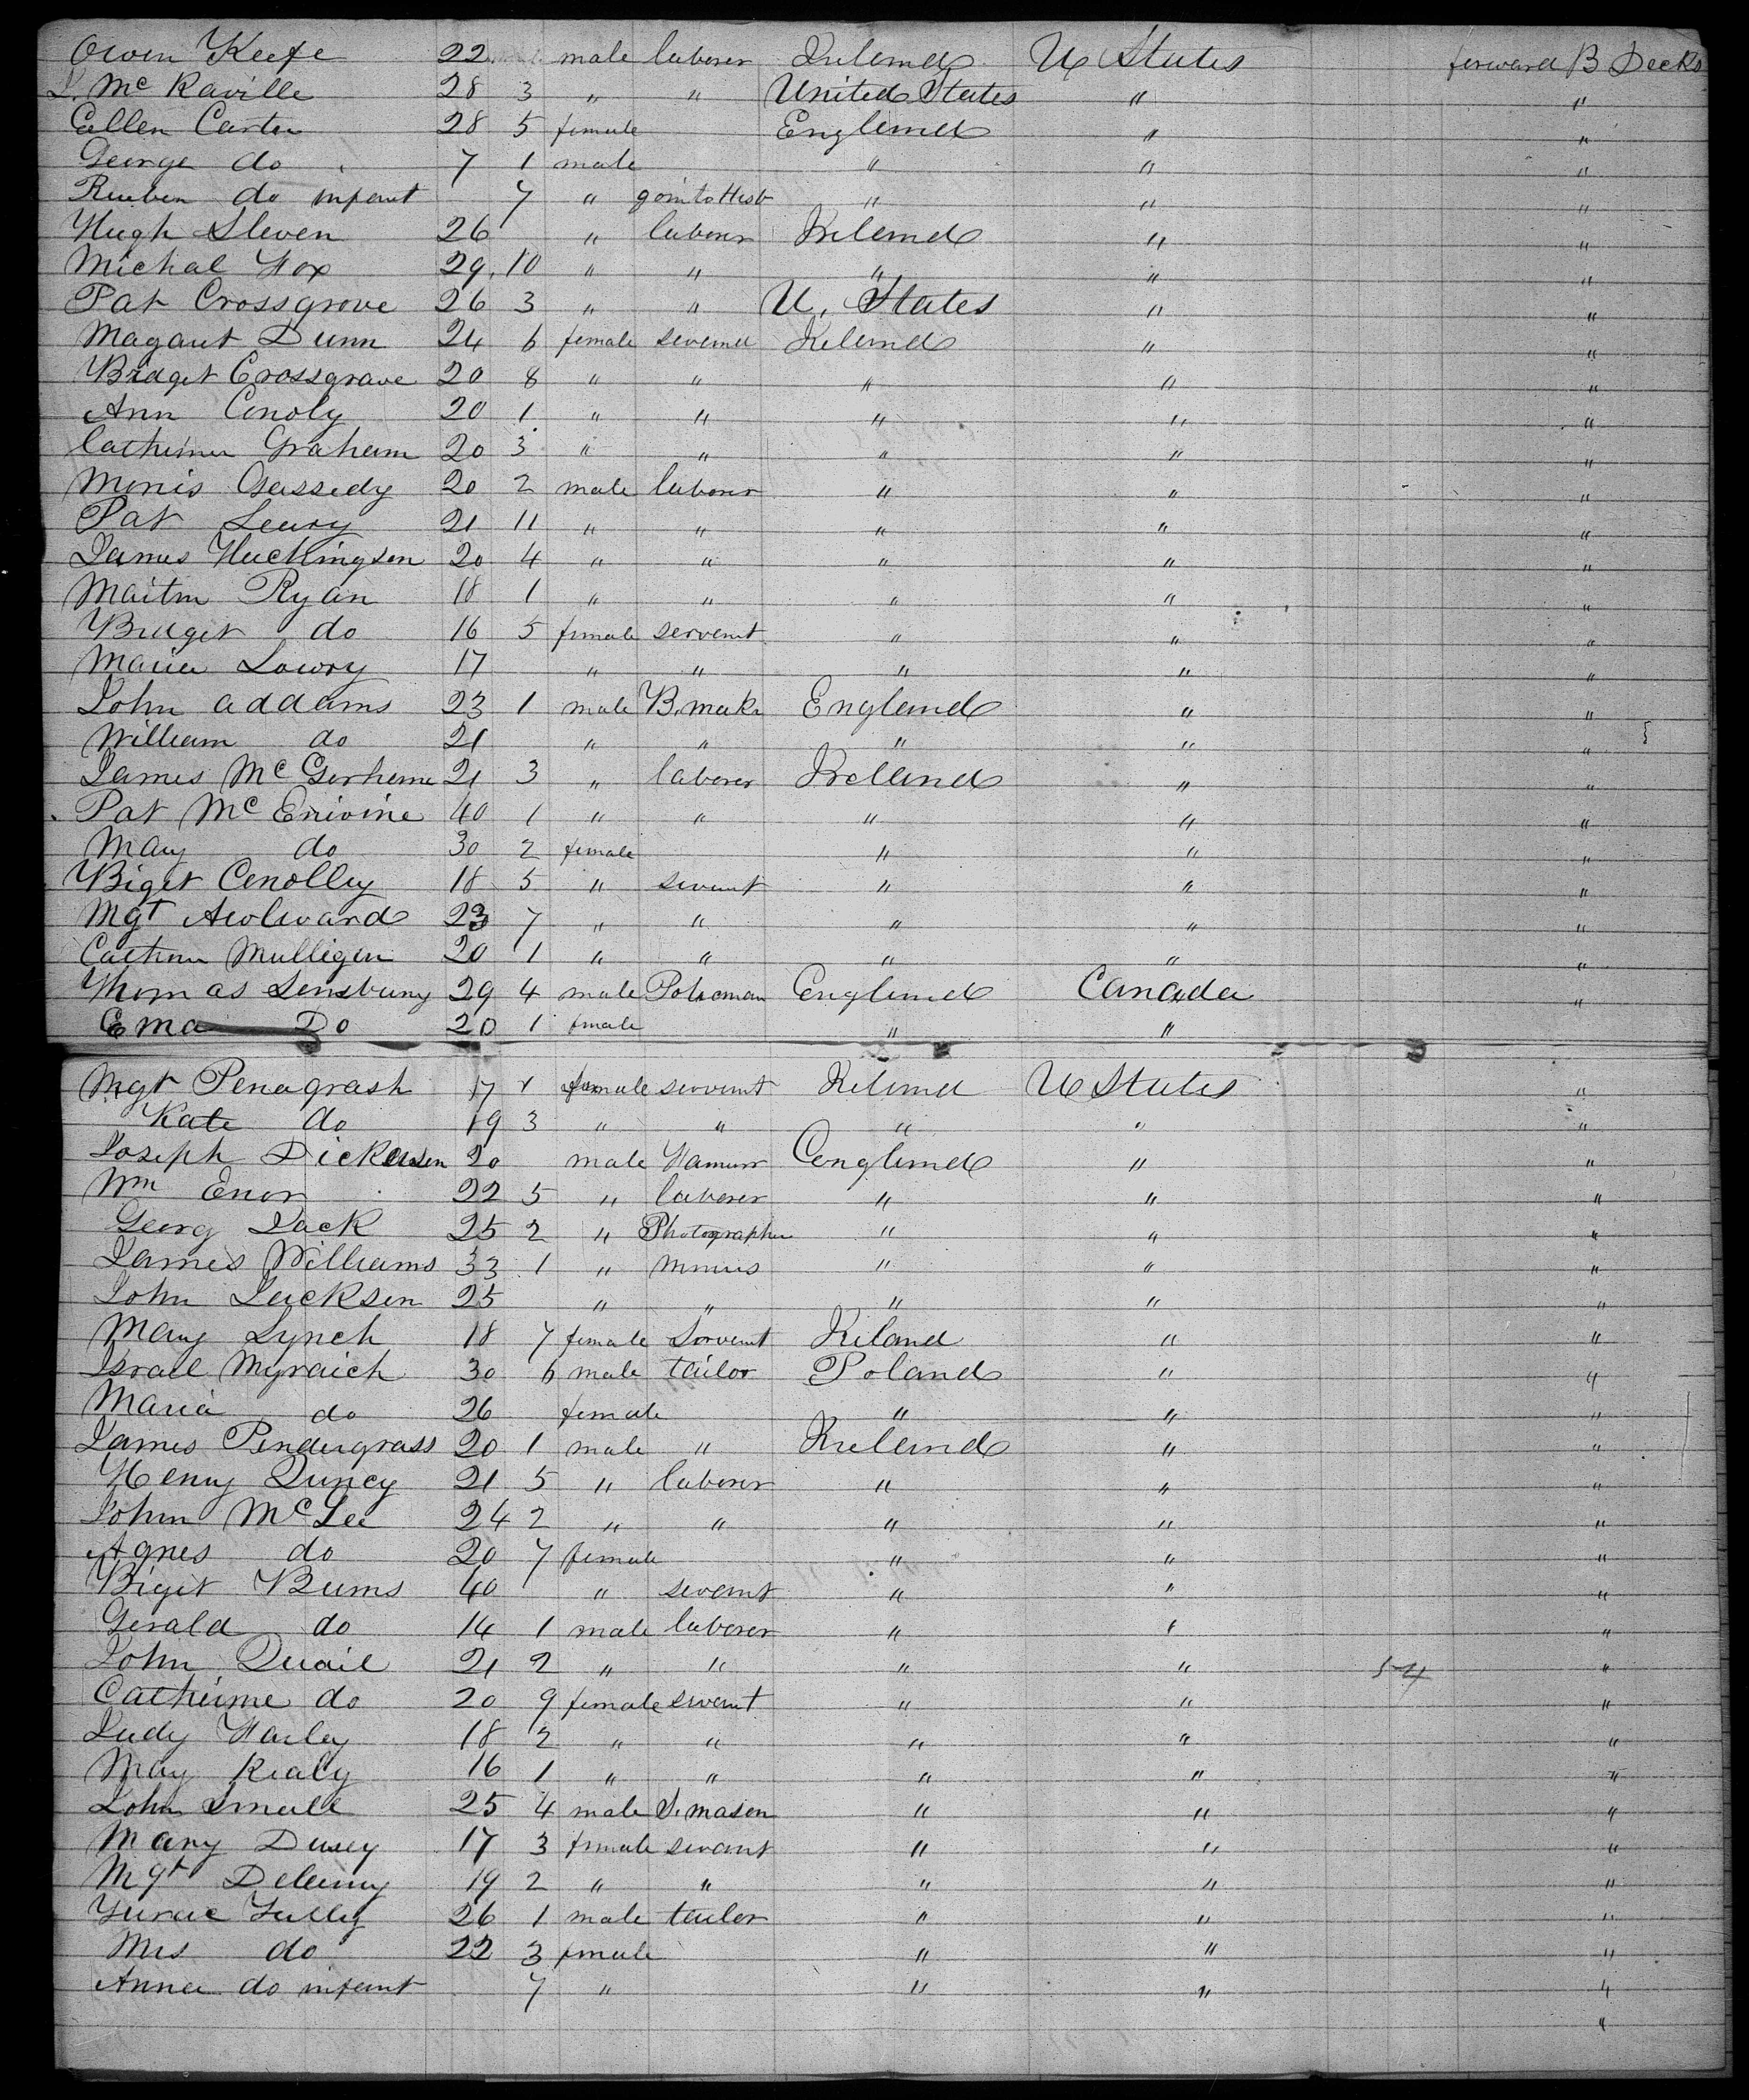 Owen Keefe 22 male laborer Ireland U States forward B Decks
L. Mc Kaville 28 3 " " United States " "
Ellen Carter 28 5 female England " "
George do 7 1 male " " "
Reuben do infant 7 " goin to Husb " " "
Hugh Sleven 26 " laborer Ireland " "
Michal Fox 29 10 " " " " "
Pat Crossgrove 26 3 " " U. States " "
Magaret Dunn 24 6 female servend Ireland " "
Bridget Crossgrave 20 8 " " " " "
Ann Conoly 20 1 " " " " "
Catherine Graham 20 3 " " " " "
Gassedy 20 2 male laborer " " "
Pat Leury 21 11 " " " " "
James Huckingson 20 4 " " " " "
Maitin Ryan 18 1 " " " " "
Bridget do 16 5 female servent " " "
Maria Lowry 17 " " " " "
John Addams 23 1 male B. makr England " "
William do 21 " " " " "
James Mc 21 3 " laborer Ireland " "
Pat Mc Enivine 40 1 " " " " "
Mary do 30 2 female " " "
Biget Conolley 18 5 " servent " " "
Mgt 23 7 " " " " "
Mulligan 20 1 " " " " "
Thomas Lensbury 29 4 male Policeman England Canada "
Ema Do 20 1 female " "
Mgt Penagrash 17 1 female servent Ireland U States "
Kate do 19 3 " " " " "
Joseph Dickason 20 male Farmer England " "
Wm Enor 22 5 " laborer " " "
Georg Jack 25 2 " Photographer " " "
James Williams 33 1 " miners " " "
John Jackson 25 " " " " "
Mary Lynch 18 7 female Servent Ireland " "
Israel Myraich 30 6 male tailor Poland " "
Maria do 26 female " " "
James Pendergrass 20 1 male " Ireland " "
Henry Quncy 21 5 " laborer " " "
John McLee 24 2 " " " " "
Agnes do 20 7 female " " "
Biget Burns 40 " servent " " "
Gerald do 14 1 male laborer " " "
John Quail 21 2 " " " " 54 "
Catherine do 20 9 female servent " " "
Judy Farley 18 2 " " " " "
May Kealy 16 1 " " " " "
John Small 25 4 male S. mason " " "
Mary Dusey 17 3 female servant " " "
Mgt Delanny 19 2 " " " " "
Tully 26 1 male tailor " " "
Mrs do 22 3 female " " "
Anna do infant 7 " " " "
"